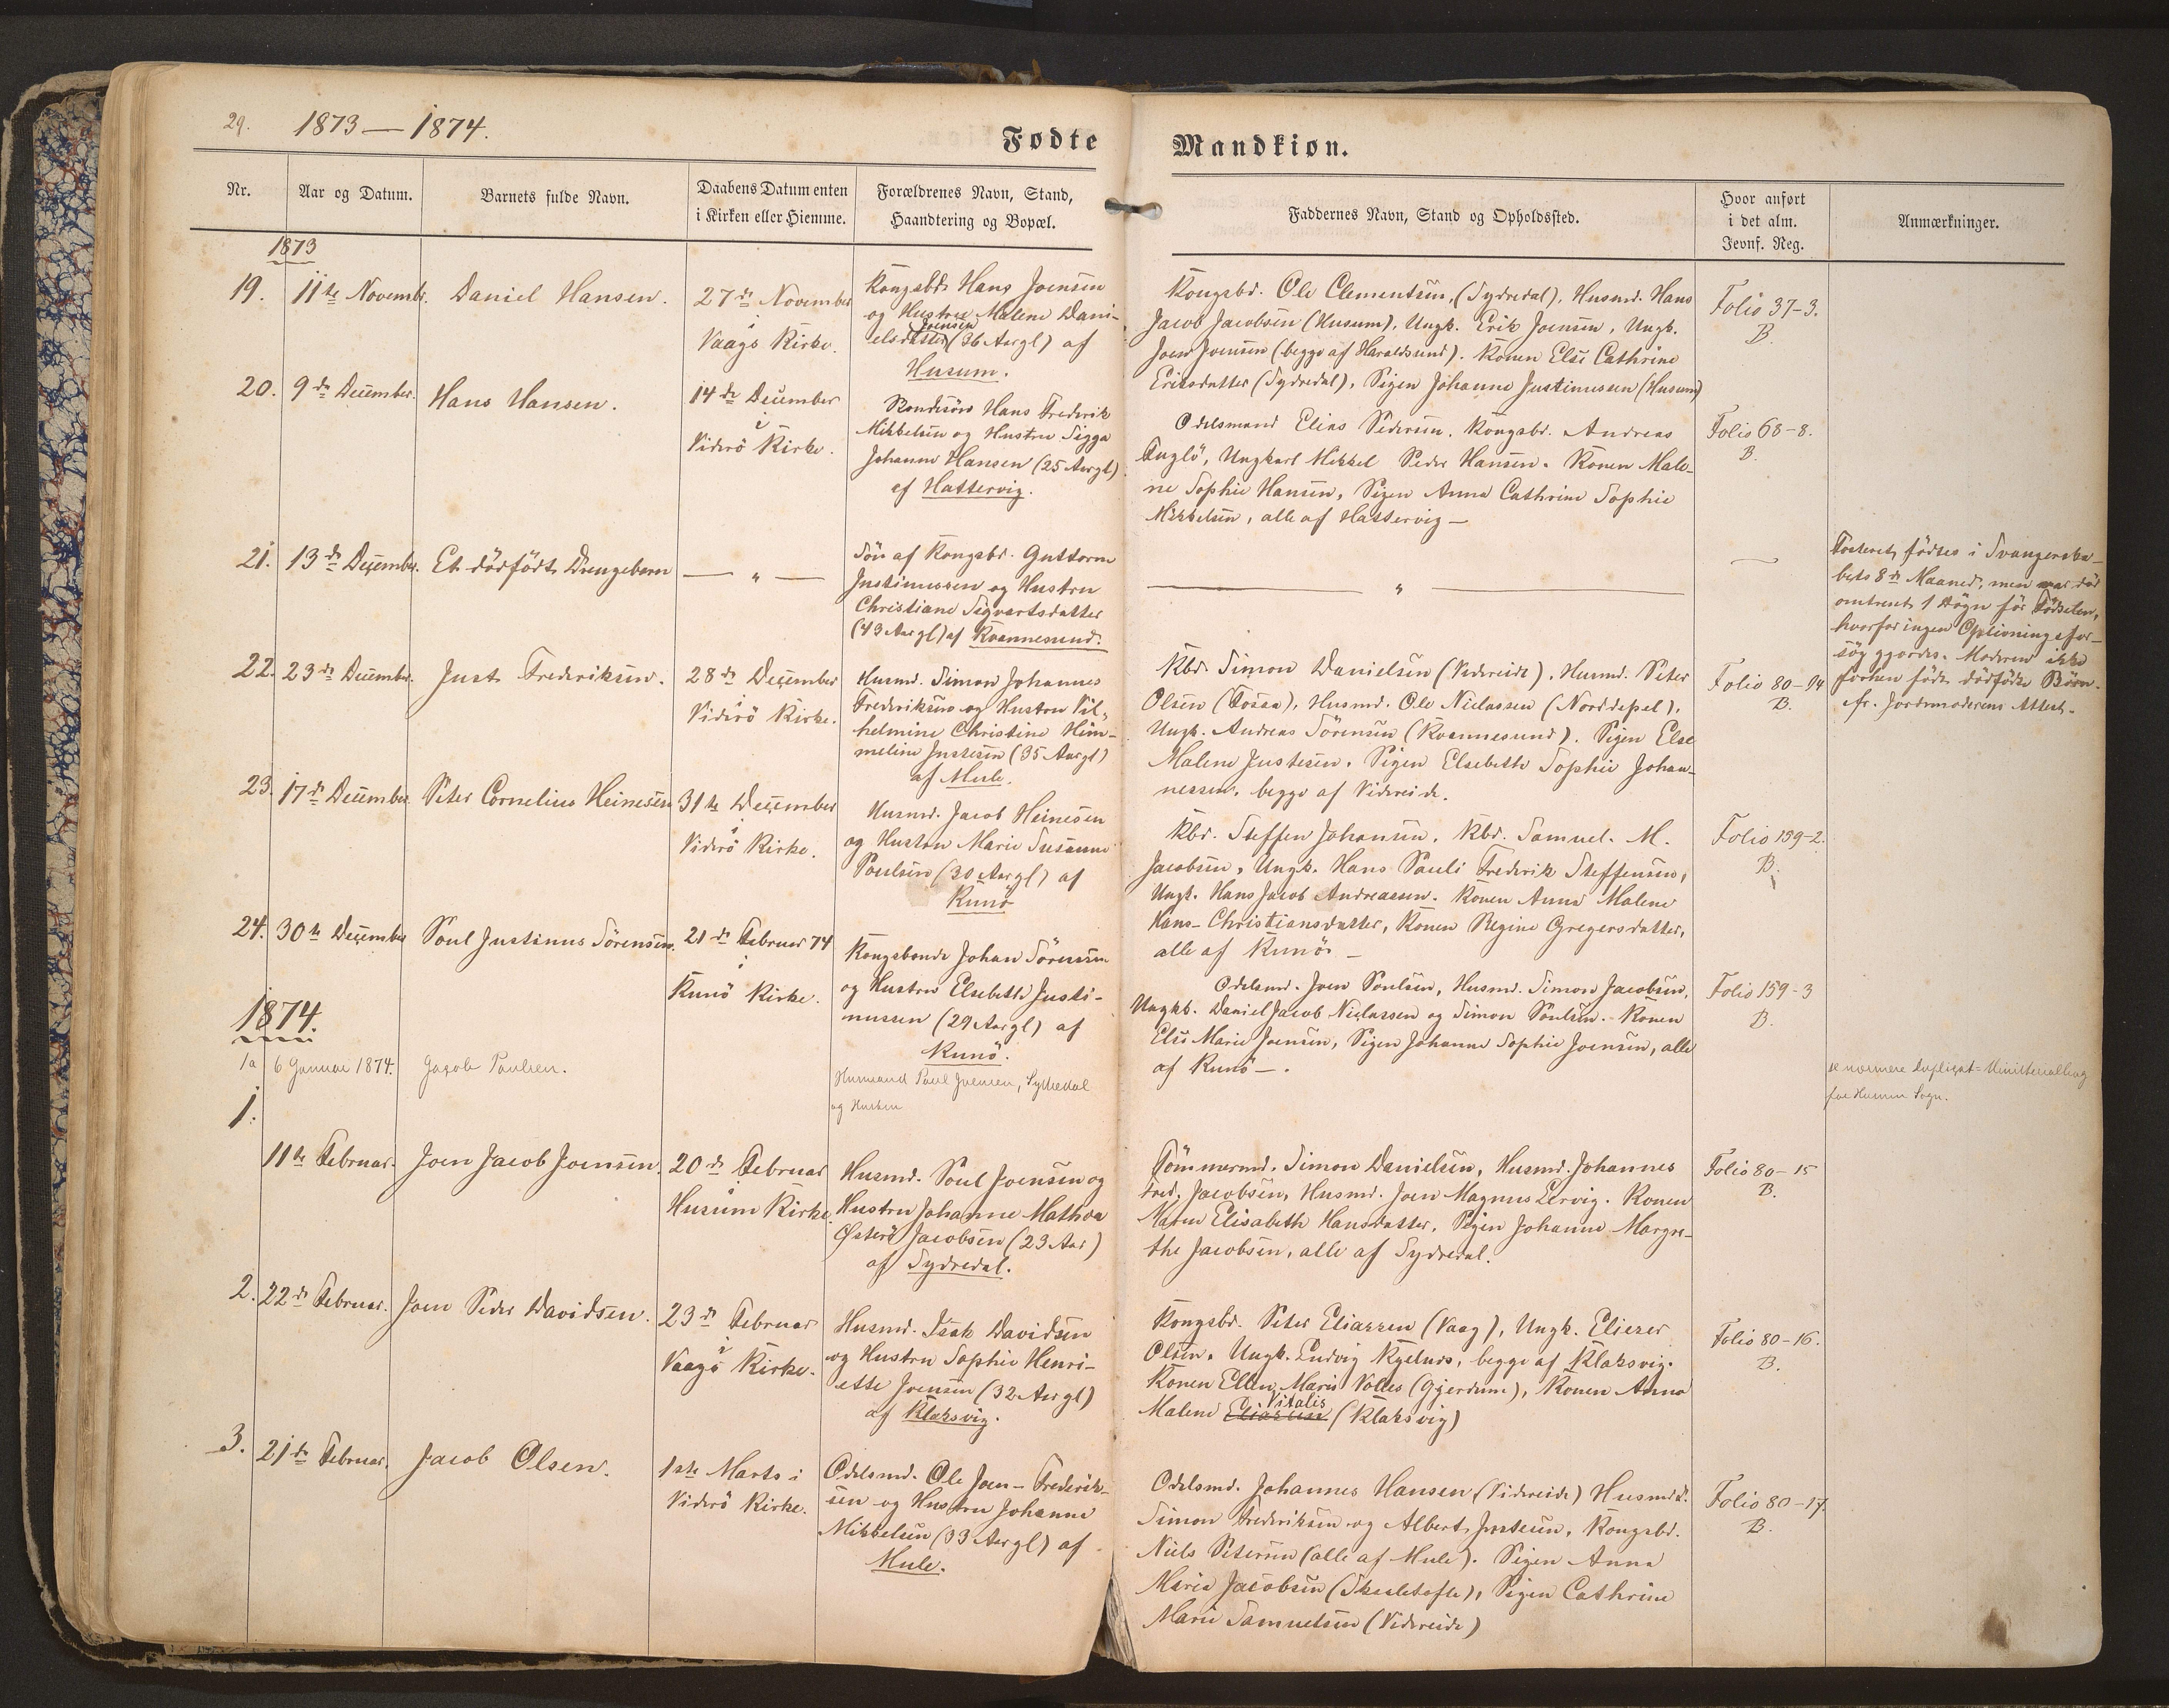 29. 1873 — 1874.
Fødte
Mandkiøn.
Nr.
Aar og Datum.
Barnets fulde Navn.
Daabens Datum enten
i Kirken eller Hiemme.
Forældrenes Navn, Stand,
Haandtering og Bopæl.
Faddernes Navn, Stand og Opholdssted.
Hvor anført
i det alm.
Jevnf. Reg.
Anmærkninger.
1873
19.
11te Novembr.
Daniel Hansen.
27de November
i
Vaags Kirke.
Kongsbd. Hans Joensen
og Hustru Malene Dani-
Joensen
elsdatter (36 Aar gl) af
Husum.
Kongsbd. Ole Clementsen, (Sydredal), Husmd. Hans
Jacob Jacobsen (Husum), Ungk. Erik Joensen, Ungk.
Joen Joensen (begge af Haraldsund). Konen Else Cathrine
Eriksdatter (Sydredal), Pigen Johanne Justinussen (Husum)
Folio 37-3.
B.
20.
9de December.
Hans Hansen.
14de December
i
Viderö Kirke.
Bondesön Hans Frederik
Mikkelsen og Hustru Sigga
Johanne Hansen (25 Aar gl)
af Hattervig.
Odelsmand Elias Pedersen. Kongsbd. Andreas
Fuglö, Ungkarl Mikkel Peder Hansen. Konen Male-
ne Sophie Hansen, Pigen Anna Cathrine Sophie
Mikkelsen, alle af Hattervig —
Folio 68-8.
B.
21.
13de Decembr.
Et dödfödt Drengebarn
— " —
Sön af Kongsbd. Guttorm
Justinussen og Hustru
Christiane Sigvertsdatter
(43 Aar gl) af Kvannesund.
— " —
—
Fosteret födtes i Svangerska-
bets 8de Maaned, men var död
omtrent 1 Dögn för Födselen,
hvorfor ingen Oplivningsfor-
sög gjordes. Moderen ikke
forhen födt dödfödte Börn.
cfr. Jordemoderens Attest.
22.
23de Decembr.
Just Frederiksen.
28de December
i
Viderö Kirke.
Husmd. Simon Johannes
Frederiksen og Hustru Vil-
helmine Christine Him-
meline Justesen (35 Aar gl)
af Mule.
Kbd. Simon Danielsen (Videreide), Husmd. Peter
Olsen (Fossa), Husmd. Ole Niclassen (Norddepel),
Ungk. Andreas Sörensen (Kvannesund). Pigen Else
Malene Justesen. Pigen Elsebeth Sophie Johan-
nessen, begge af Videreide.
Folio 80-14
B.
23.
17de December.
Peter Cornelius Heinesen
31te December
i
Viderö Kirke.
Husmd. Jacob Heinesen
og Hustru Marie Susanne
Poulsen (30 Aar gl) af
Kunö
Kbd. Steffen Johansen. Kbd. Samuel. M.
Jacobsen, Ungk. Hans Pauli Frederik Steffensen,
Ungk. Hans Jacob Andreassen. Konen Anne Malene
Hans-Christiansdatter, Konen Regine Gregersdatter,
alle af Kunö. —
Folio 159-2.
B.
24.
30te December
Poul Justinus Sörensen.
21de Februar 74
i
Kunö Kirke.
Kongsbonde Johan Sörensen
og Hustru Elsebeth Justi-
nussen (29 Aar gl) af
Kunö.
Odelsmd. Joen Poulsen, Husmd. Simon Jacobsen,
Ungkb. Daniel Jacob Niclassen og Simon Poulsen. Konen
Else Marie Joensen, Pigen Johanne Sophie Joensen, alle
af Kunö —.
Folio 159-3
B.
1874.
1a
6 Januar 1874.
Jacob Paulsen.
Husmand Paul Joensen, Sydredal
og Hustru
se nærmere Duplicat-Ministerialbog
for Husum Sogn.
1.
11te Februar.
Joen Jacob Joensen.
20de Februar
i
Husum Kirke.
Husmd. Poul Joensen og
Hustru Johanne Mathea
Østerö Jacobsen (23 Aar)
af Sydredal.
Tömmermd. Simon Danielsen, Husmd. Johannes
Fred. Jacobsen, Husmd. Joen Magnus Lervig. Konen
Maren Elisabeth Hansdatter, Pigen Johanne Margre-
the Jacobsen, alle af Sydredal.
Folio 80-15
B.
2.
22de Februar.
Joen Peder Davidsen.
23de Februar
i
Vaags Kirke.
Husmd. Isak Davidsen
og Hustru Sophie Henri-
ette Joensen (32 Aar gl)
af Klaksvig.
Kongsbd. Peter Eliassen (Vaag), Ungk. Elieser
Olsen. Ungk. Ludvig Kjelnes, begge af Klaksvig.
Konen Ellen Marie Volles (Gjerdum), Konen Anna
Vitalis
Malene Eliassen (Klaksvig)
Folio 80-16.
B.
3.
21de Februar.
Jacob Olsen.
1ste Marts i
Viderö Kirke.
Odelsmd. Ole Joen-Frederik-
sen og Hustru Johanne
Mikkelsen (33 Aar gl) af
Mule.
Odelsmd. Johannes Hansen (Videreide) Husmd.
Simon Frederiksen og Albert Justesen, Kongsbd.
Niels Petersen (alle af Mule). Pigen Anna
Maria Jacobsen (Skaaletofte), Pigen Cathrine
Marie Samuelsen (Videreide)
Folio 80-17.
B.